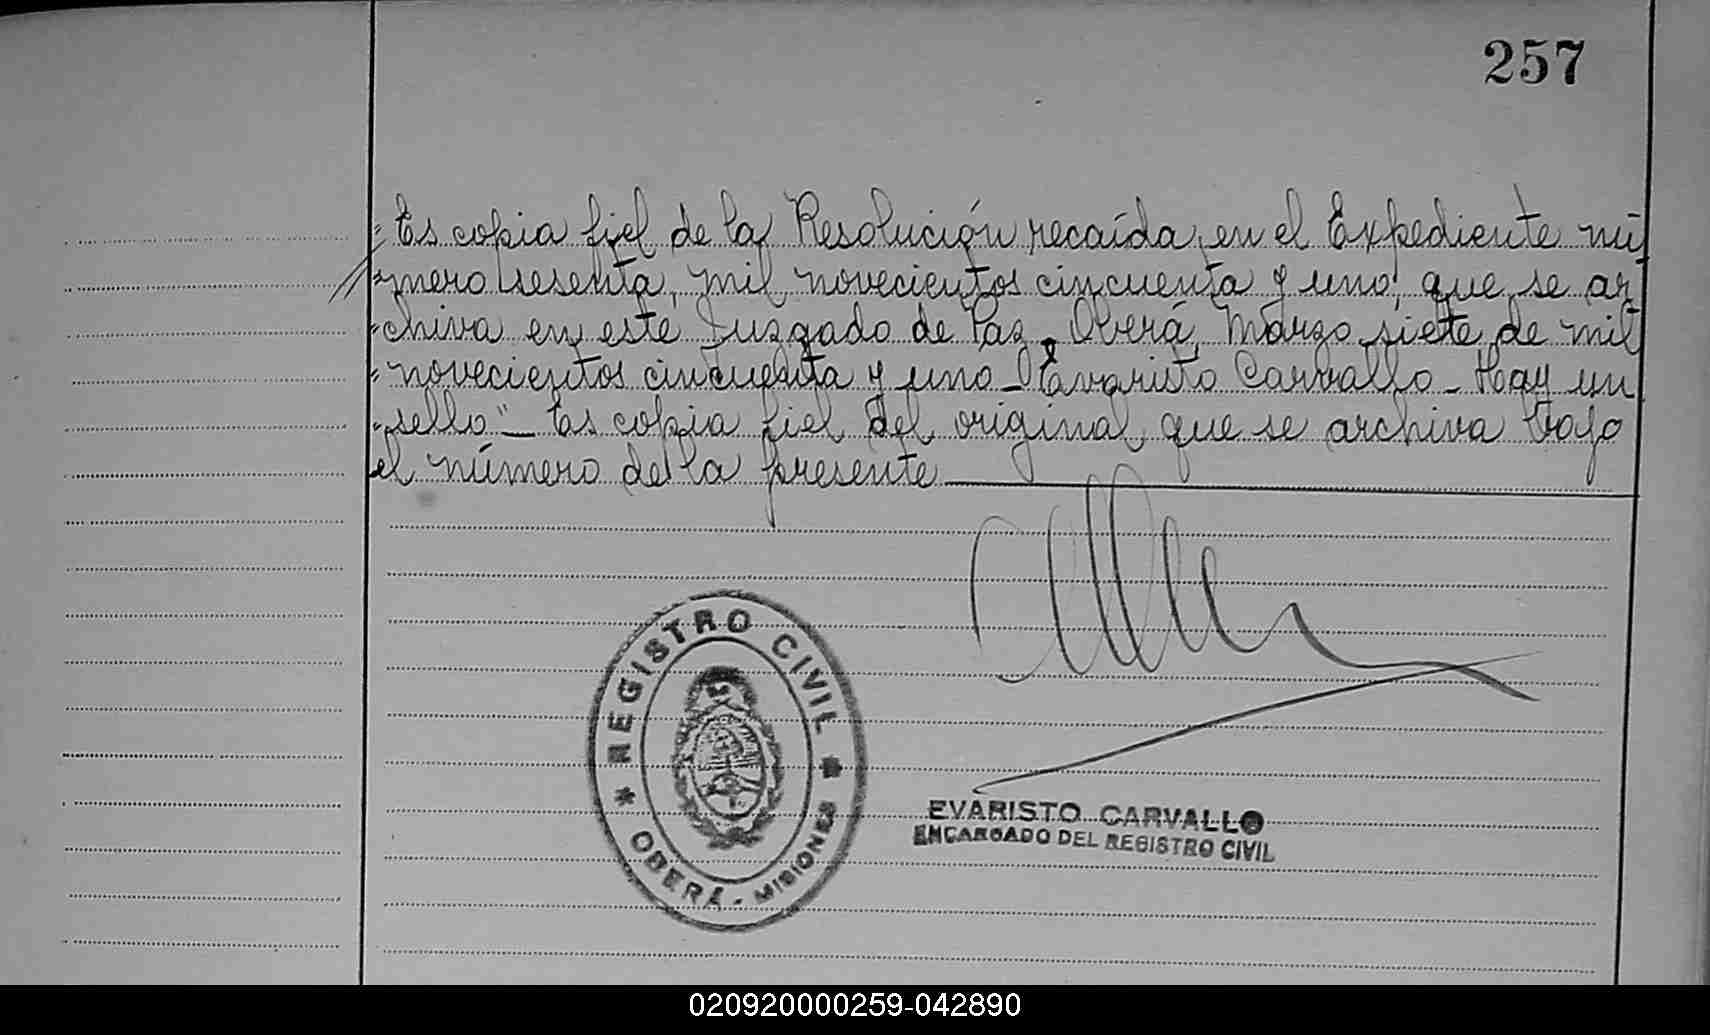 257
"Es copia fiel de la Resolución recaída en el Expediente nú
"mero sesenta, mil novecientos cincuenta y uno, que se ar
"chiva en este Juzgado de Paz. Oberá, Marzo siete de mil
"novecientos cincuenta y uno - Evaristo Carvallo - Hay un
"sello" - Es copia fiel del original que se archiva bajo
el número de la presente
REGISTRO CIVIL
* OBERÁ - MISIONES *
EVARISTO CARVALLO
ENCARGADO DEL REGISTRO CIVIL
020920000259-042890